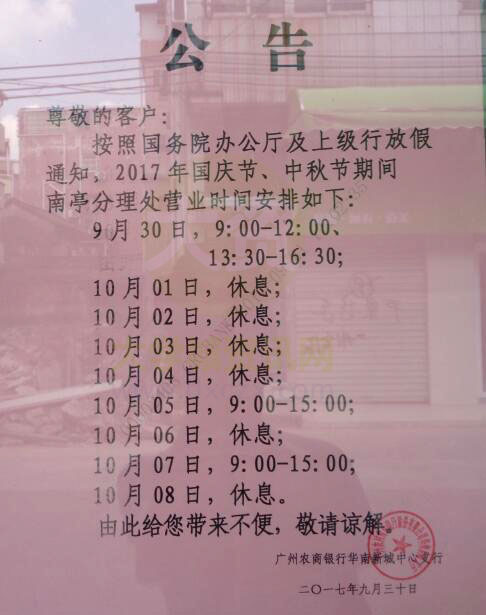 公 告
尊敬的客户:
按照国务院办公厅及上级行放假
通知, 2017 年国庆节、中秋节期间
南亭分理处营业时间安排如下:
9 月 30 日, 9:00-12:00、
13:30-16:30;
10 月 01 日, 休息;
10 月 02 日, 休息;
10 月 03 日, 休息;
10 月 04 日, 休息;
10 月 05 日, 9:00-15:00;
10 月 06 日, 休息;
10 月 07 日, 9:00-15:00;
10 月 08 日, 休息。
由此给您带来不便, 敬请谅解。
广州农商银行华南新城中心支行
二〇一七年九月三十日